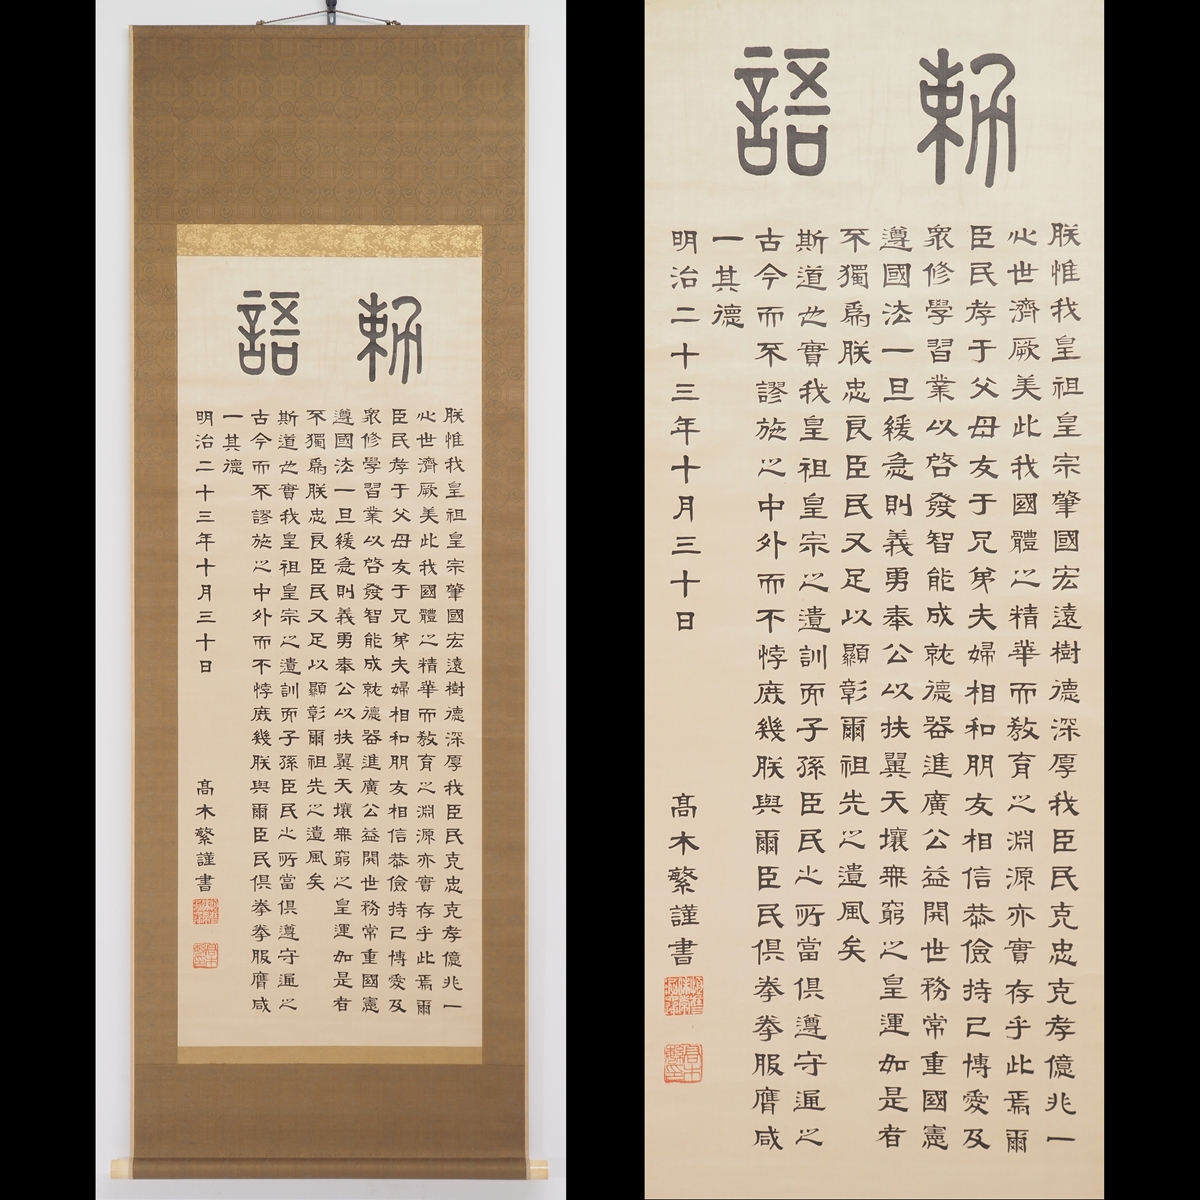 勅語
朕惟我皇祖皇宗肇國宏遠樹德深厚我臣民克忠克孝億兆一
心世濟厥美此我國體之精華而教育之淵源亦實存乎此焉爾
臣民孝于父母友于兄弟夫婦相和朋友相信恭儉持己博愛及
衆修學習業以啓發智能成就德器進廣公益開世務常重國憲
遵國法一旦緩急則義勇奉公以扶翼天壤無窮之皇運如是者
不獨爲朕忠良臣民又足以顯彰爾祖先之遺風矣
斯道也實我皇祖皇宗之遺訓而子孫臣民之所當俱遵守通之
古今而不謬施之中外而不悖庶幾朕與爾臣民俱拳拳服膺咸
一其德
明治二十三年十月三十日
髙木繁謹書
勅語
朕惟我皇祖皇宗肇國宏遠樹德深厚我臣民克忠克孝億兆一
心世濟厥美此我國體之精華而教育之淵源亦實存乎此焉爾
臣民孝于父母友于兄弟夫婦相和朋友相信恭儉持己博愛及
衆修學習業以啓發智能成就德器進廣公益開世務常重國憲
遵國法一旦緩急則義勇奉公以扶翼天壤無窮之皇運如是者
不獨爲朕忠良臣民又足以顯彰爾祖先之遺風矣
斯道也實我皇祖皇宗之遺訓而子孫臣民之所當俱遵守通之
古今而不謬施之中外而不悖庶幾朕與爾臣民俱拳拳服膺咸
一其德
明治二十三年十月三十日
髙木繁謹書